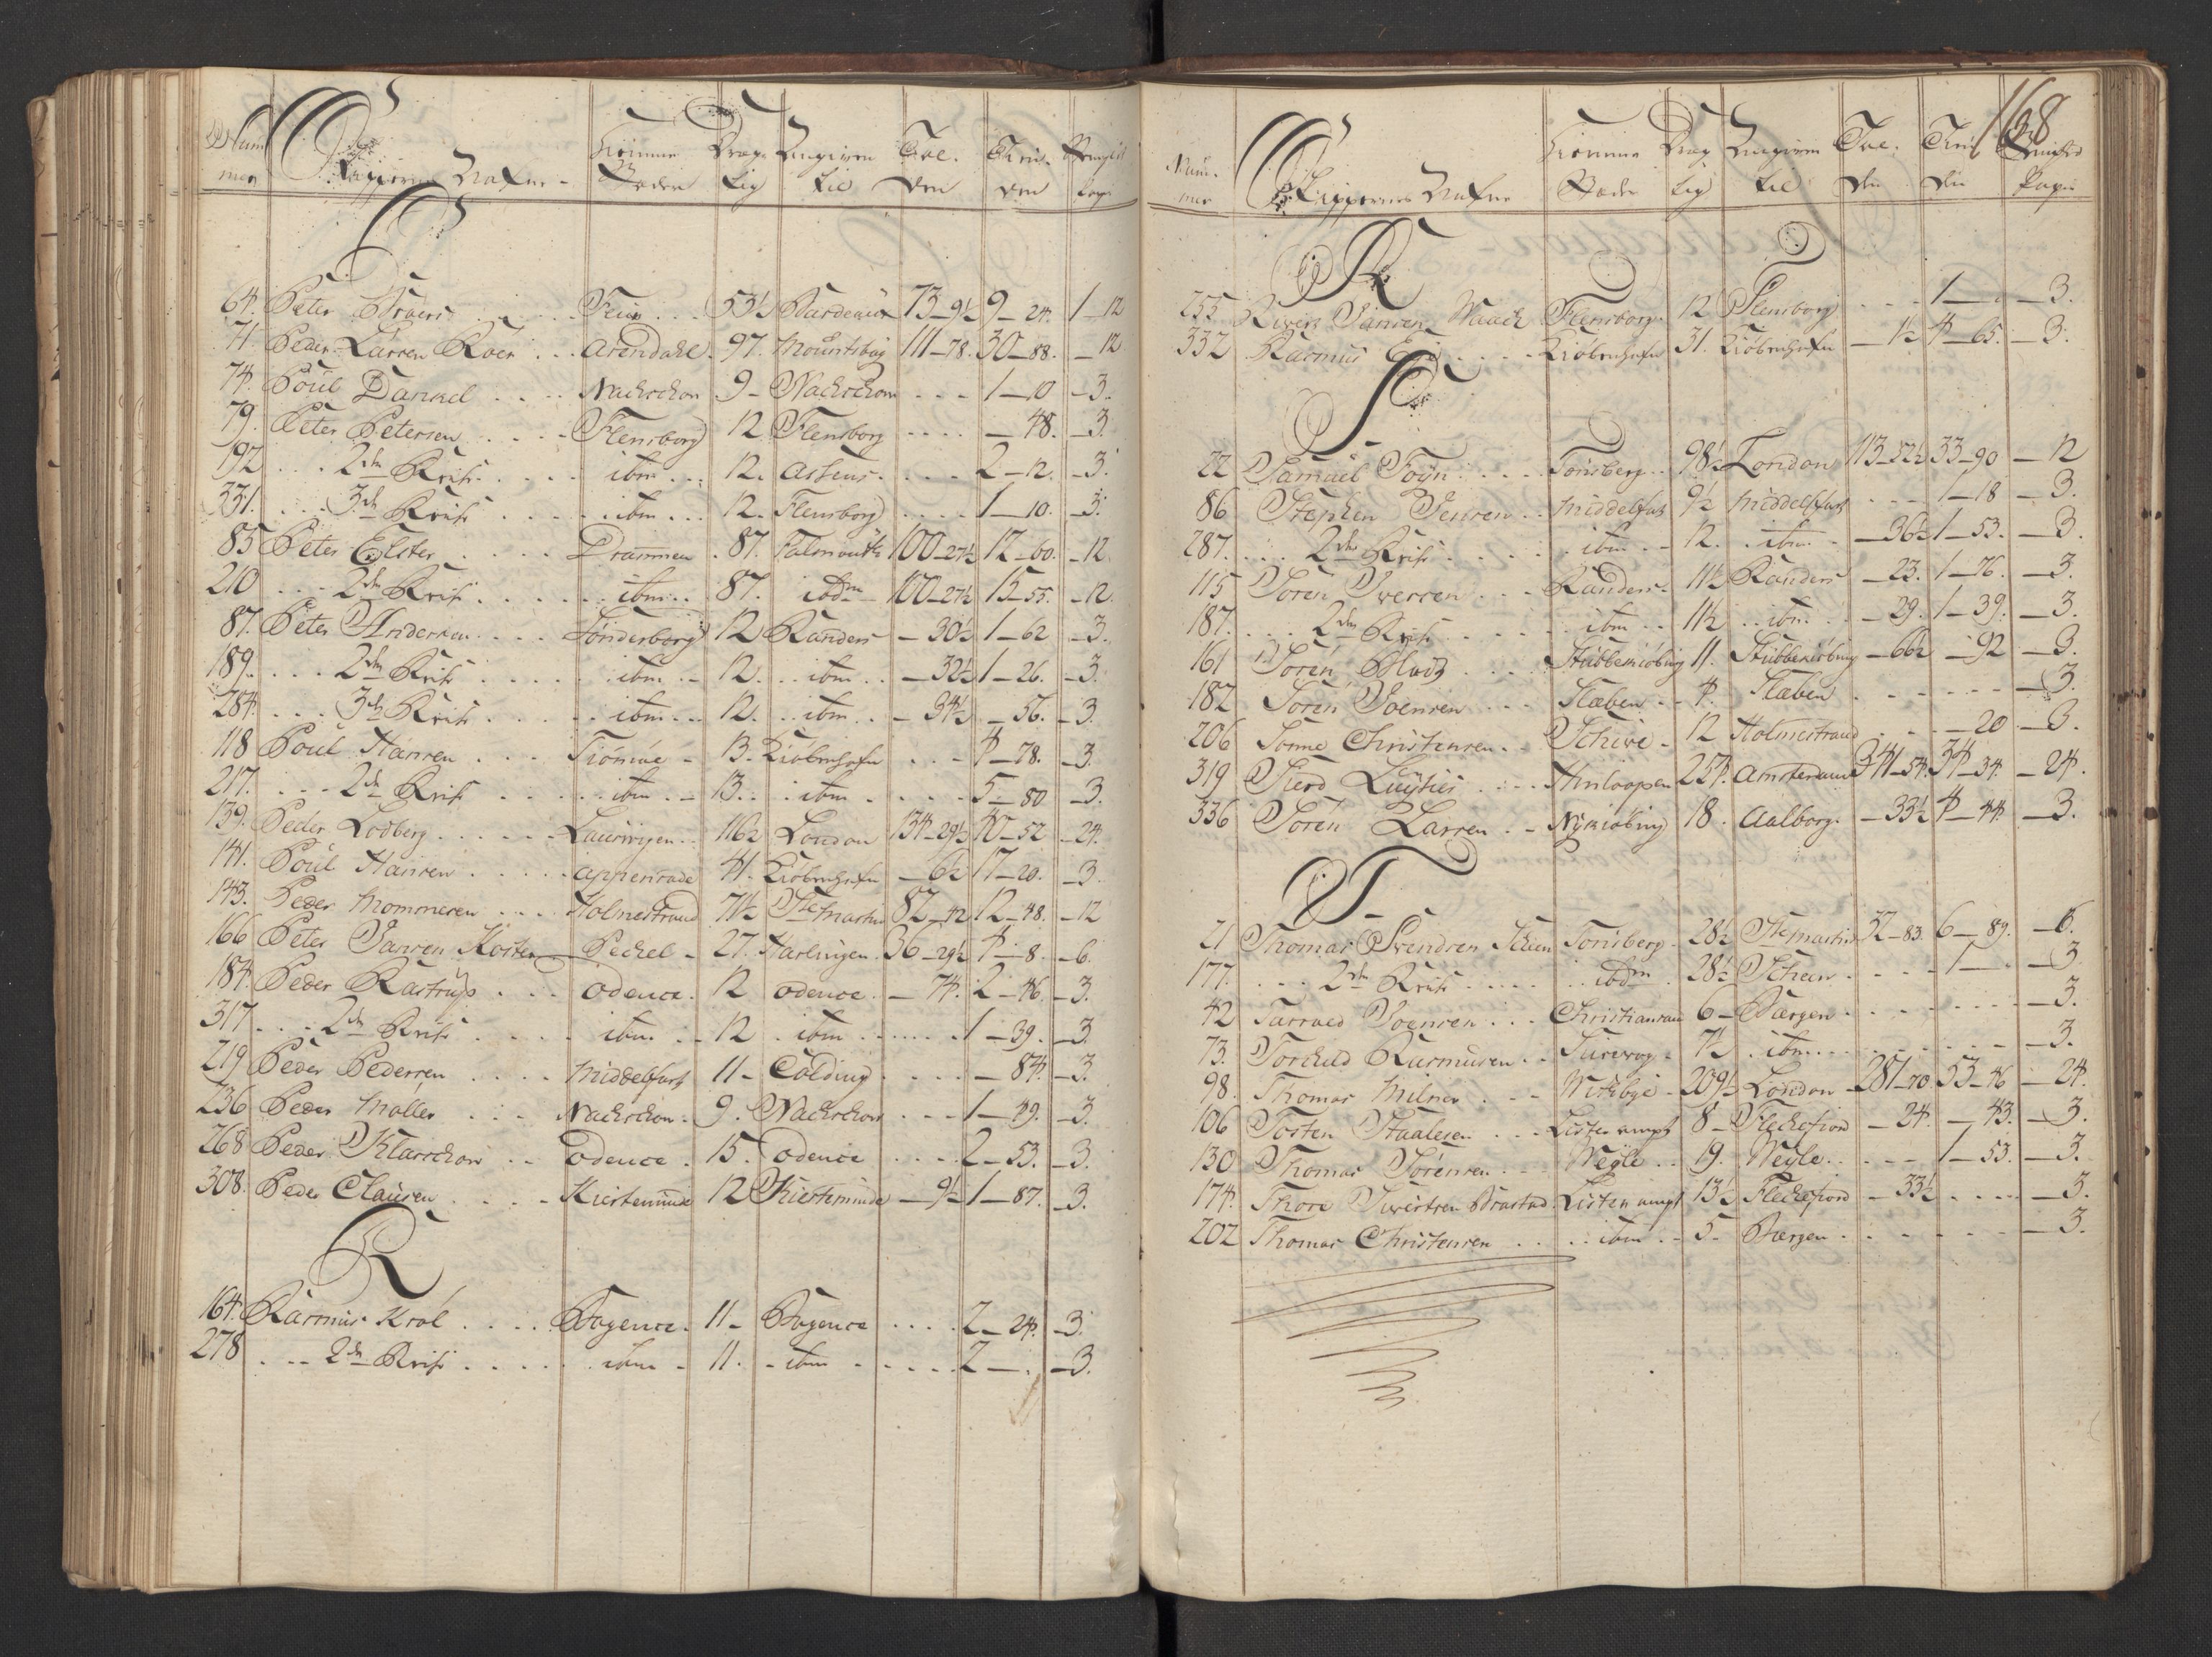 Num mer Skippernes Nafne Hiemme Steder Dræg tig Angiven til Tol. den Accis. den Stemplet Papir
P
64. Peter Feiøe 53½ Bardeaux 73-9½ 9-24. 1-12
71. Peder Larsen Roer Arendahl. 97. Mountsbay 111-78. 30-88. -12
74. Poul Danxel Nachschou 9- Nachschou 1-10 -3.
79. Peter Petersen Flensborg 12 Flensborg -48. -3.
192 2den Reise ibm 12. Assens 2-12. -3.
331. 3de Reise ibm 12. Flensborg 1-10. -3.
85 Peter Elster Drammen 87. Falmouth 100-27½ 12-60. -12.
210 2den Reise ibm 87. ibdm 100-27½ 15-55. -12.
87. Peter Andersen Sønderborg 12 Randers -30½ 1-62 -3.
189. 2den Reise ibm 12. ibm -32½ 1-26. -3.
284. 3de Reise ibm 12. ibm -34½ -56. -3.
118 Poul Hansen Tiømøe 13. Kiøbenhafn 4-78. -3.
217. 2den Reise ibm 13. ibm 5-80 -3.
139. Peder Lodberg Laurvigen 116½ London 134-29½ 40-52 -24.
141. Poul Hansen Appenrade 41. Kiøbenhafn -6½ 17-20. -3.
143. Peder Mommesen Holmestrand 71½ Ste Martin 82-42 12-48. -12
166 Peter Jansen Koster Pechel 27. Harlingen 36-29½ 4-8. -6.
184. Peder Rastrup Odence. 12 Odence -74. 2-46. -3.
317. 2den Reise ibm 12 ibm 1-39. -3.
219 Peder Pedersen Middelfart 11- Colding -84. -3.
236 Peder Møller Nachschou. 9. Nachschou 1-29. -3.
268 Peder Klarschou Odence. 15. Odence 2-53. -3.
308. Peder Clausen Kierteminde 12 Kierteminde -9½ 1-87. -3.
R
164. Rasmus Krol Bogence. 11- Bogence 2-24. -3.
278 2den Reise ibm 11. ibm 2-. -3.
168
Num mer Skippernes Nafne Hiemme Steder Dræg tig Angiven til Tol. den Accis. den Stemplet Papir
R
255. Jansen Waack Flensborg. 12 Flensborg 1-. -3.
332 Rasmus Kiøbenhafn 31. Kiøbenhafn -1½ 4-65. -3.
S
22 Samuel Foyn Tønsberg 98½ London 113-52½ 33-90 -12
86 Stephen Jensen Middelfart 9½ Middelfart 1-18 -3.
287. 2den Reise ibm 12. ibm -36½ 1-53. -3.
115 Søren Iversen Randers 11½ Randers -23. 1-76. -3.
187. 2den Reise ibm 11½ ibm -29. 1-39. -3.
161 Søren Stubbekiøbing 11. Stubbekiøbing -66½ -92 -3.
182 Søren Joensen Staben 4. Staben -3.
206 Sonne Christensen Schive 12 Holmestrand -20 -3.
319 Sierd Luyties Hinloopen 254. Amsterdam 341-54. 34-34. -24.
336 Søren Larsen Nykiøbing 18. Aalborg. -33½ 4-44 -3.
T
21 Thomas Svendsen Schien Tønsberg 28½ Ste Martin 32-83. 6-89. -6.
177. 2den Reise ibdm 28½ Schien 1-. -3
42 Tarrald Joensen Christiansand 6- Bergen -3.
73. Torchild Rasmusen 7½ ibm -3.
98. Thomas Milner Witbye 209½ London 281-70. 53-46 -24.
106 Tosten Staalesen Lister ampt 8- Flechefiord -24. -43. -3.
130 Thomas Sørensen Weyle 19. Weyle 1-53. -3.
174. Thore Siversen Brastad. Lister ampt 13½ Flechefiord -33½ -3.
202 Thomas Christensen ibm 5- Bergen -3.